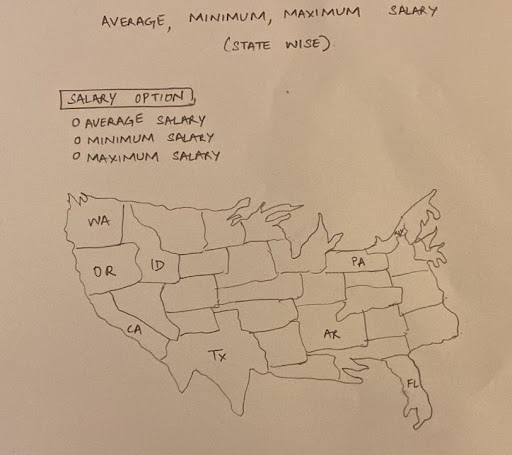 AVERAGE, MINIMUM, MAXIMUM SALARY
(STATE WISE)
SALARY OPTION
O AVERAGE SALARY
O MINIMUM SALARY
O MAXIMUM SALARY
WA
OR
ID
PA
CA
TX
AR
FL